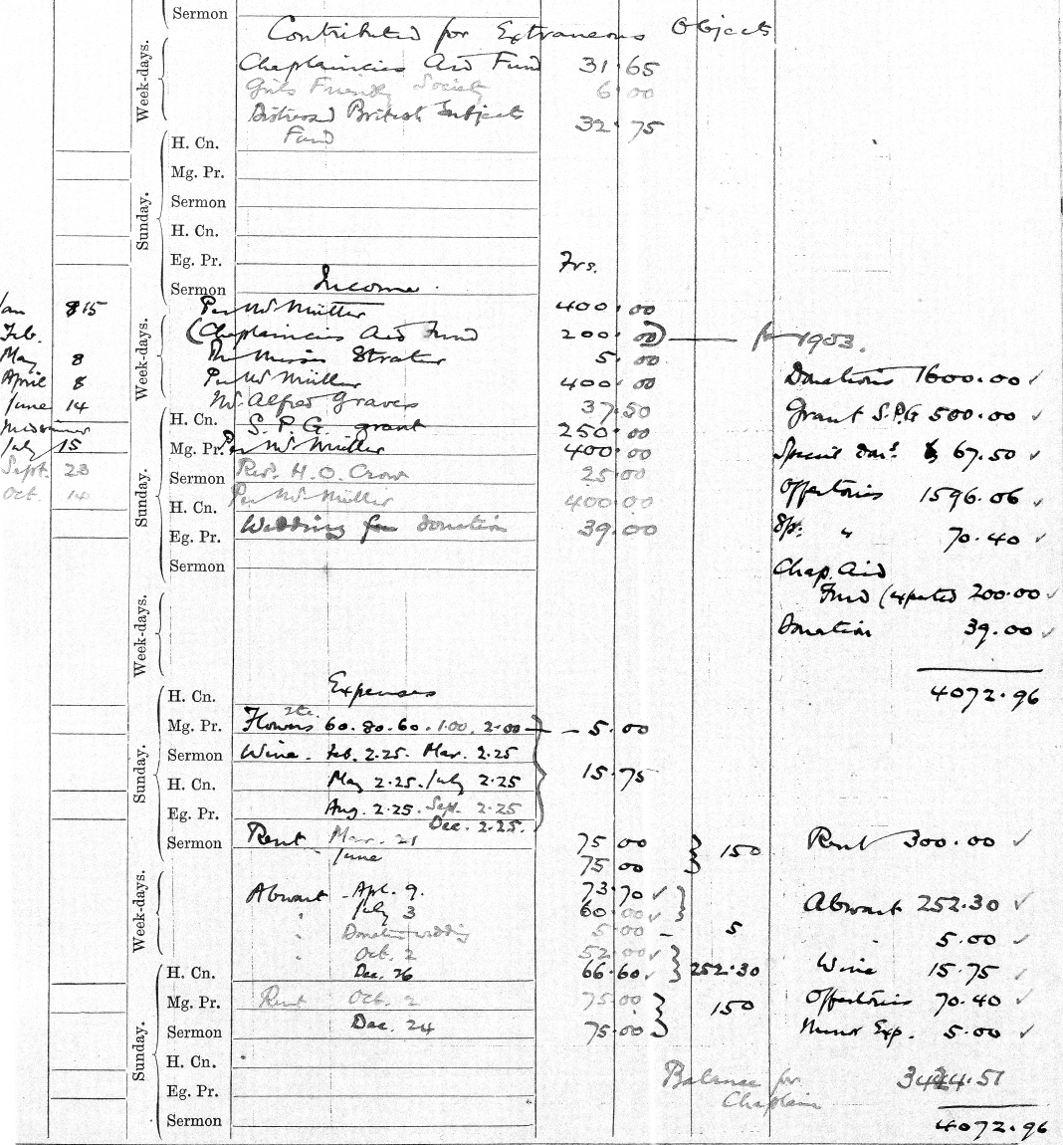 Sermon
Contributed for Extraneous Objects
Week-days.
Chaplaincies Aid Fund 31.65
Girls Friendly Society 6.00
Distressed British Subject 32.75
Fund
Sunday.
H. Cn.
Mg. Pr.
Sermon
H. Cn.
Eg. Pr.
Sermon
Income.
Frs.
Week-days.
Jan 815 Per Mr Müller 400.00
Feb. (Chaplaincies Aid Fund 200.00) — for 1903.
May 8 5.00
April 8 Per Mr Müller 400.00
June 14 Mr Alfred Graves 37.50
Sunday.
Midsummer H. Cn. S.P.G. grant 250.00
July 15 Mg. Pr. Per Mr Müller 400.00
Sept. 23 Sermon Rev. H.O. Crow 25.00
Oct. 14 H. Cn. Per Mr Müller 400.00
Eg. Pr. Wedding donation 39.00
Sermon
Donations 1600.00 ✓
Grant S.P.G 500.00 ✓
Special Don.s 67.50 ✓
Offertories 1596.06 ✓
Sp. " 70.40 ✓
Chap. Aid
Fund (expected 200.00 ✓
Donation 39.00 ✓
4072.96
Week-days.
Sunday.
Expenses
H. Cn.
Mg. Pr. Flowers 60. 80. 60. 1.00. 2.00 } — 5.00
Sermon Wine. Feb. 2.25. Mar. 2.25
H. Cn. May 2.25. July 2.25 } 15.75
Eg. Pr. Aug. 2.25. Sept. 2.25
Dec. 2.25.
Sermon Rent Mar. 21 75.00 } 150 Rent 300.00 ✓
" June 75.00
Week-days.
Abwart Apl. 9. 73.70 ✓ Abwart 252.30 ✓
" July 3 60.00 ✓
" Donation wedding 5.00 — 5 " 5.00 ✓
" Oct. 2 52.00 ✓
Sunday.
H. Cn. Dec. 26 66.60 ✓ } 252.30 Wine 15.75 ✓
Mg. Pr. Rent Oct. 2 75.00 } 150 Offertories 70.40 ✓
Sermon Dec. 24 75.00 Minor Exp. 5.00 ✓
H. Cn.
Eg. Pr. Balance for 3424.51
Chaplain
Sermon 4072.96